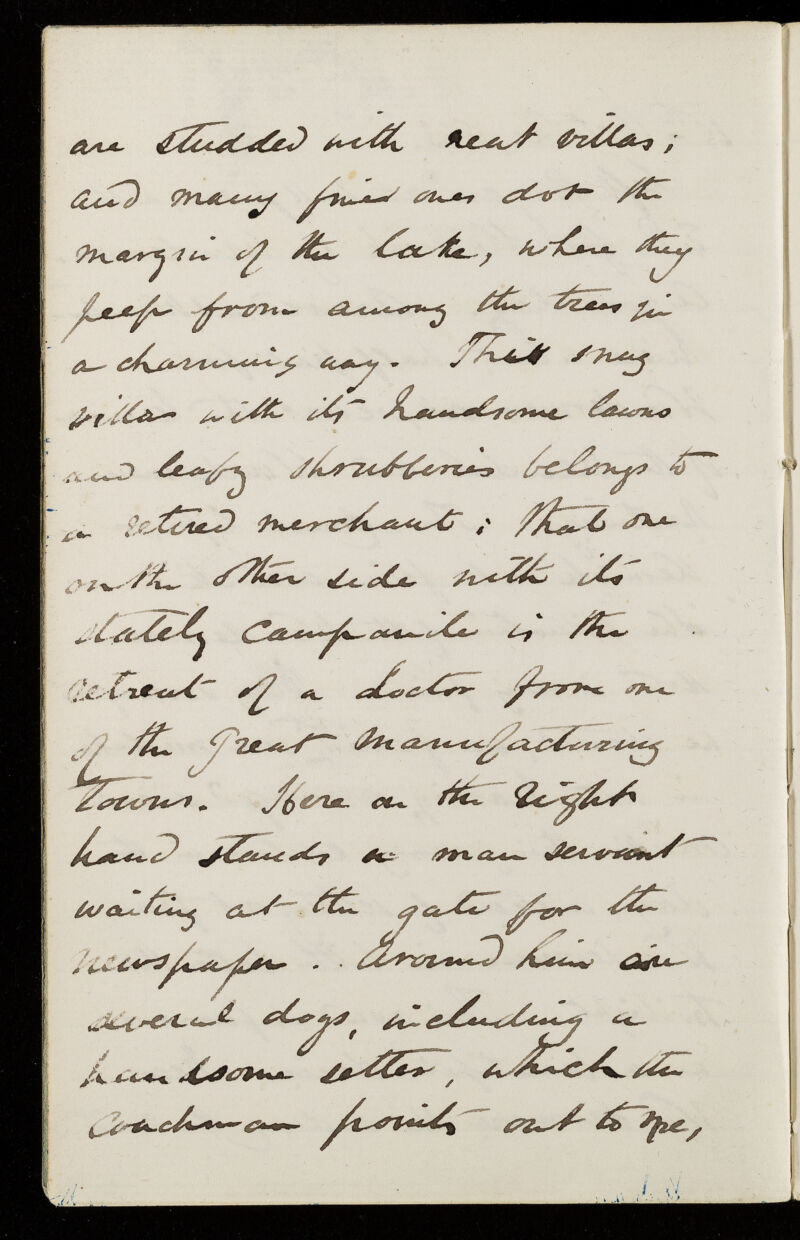 are studded with neat villas;
and many finer ones dot the
margin of the lake, where they
peep from among the trees in
a charming way. This snug
villa with its handsome lawns
and leafy shrubberies belongs to
a retired merchant; that one
on the other side with its
stately campanile is the
retreat of a doctor from one
of the great manufacturing
towns. Here on the right
hand stands a man servant
waiting at the gate for the
newspaper. Around him are
several dogs, including a
handsome setter, which the
coachman points out to me,